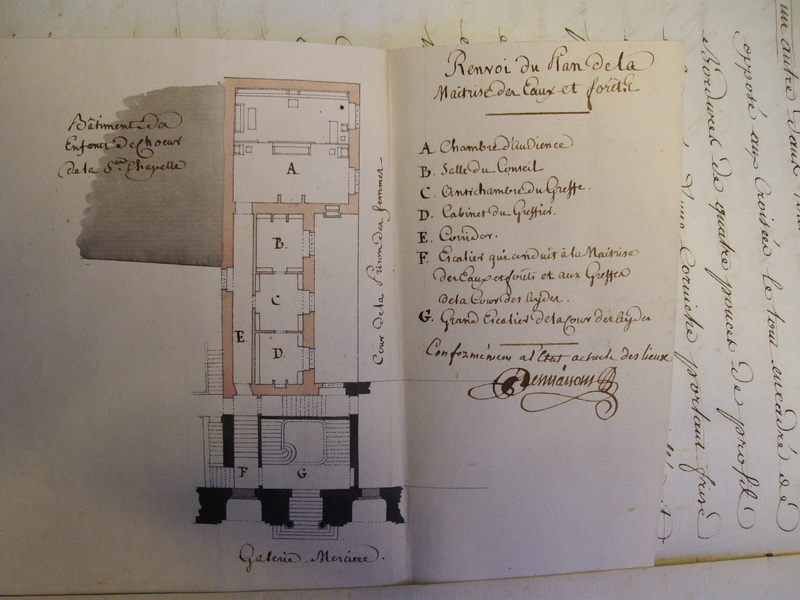 Bâtiment des
Enfants de Choeur
de la Ste. Chapelle
A
B.
C
D.
E
F
G.
Cour de la Prison des femmes
Galerie Merciere.
Renvoi du Plan de la
Maitrise des Eaux et forêts
A. Chambre d'audience
B. Salle du Conseil
C. Antichambre du Greffe.
D. Cabinet du Greffier.
E. Corridor.
F. Escalier qui conduit à la Maitrise
des Eaux et forêts et aux Greffes
de la Cour des Aydes.
G. Grand Escalier de la Cour des Aydes
Conformément à l'Etat actuele des lieux
Desmaisons
un autre
opposé aux Croisées le tout encadré de
bordures de quatre pouces de profil
Corniche portant frise